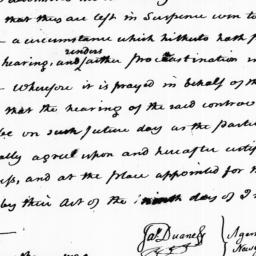 that they are left in Suspence
a circumstance which hitherto hath
renders
hearing, and farther Procrastination
Wherefore it is prayed in behalf of th
that the hearing of the said controv
be on such future day as the Parti
ally agree upon and hereafter certif
and at the Place appointed for th
by their Act of the ninth day of J
Jas. Duane
Agen